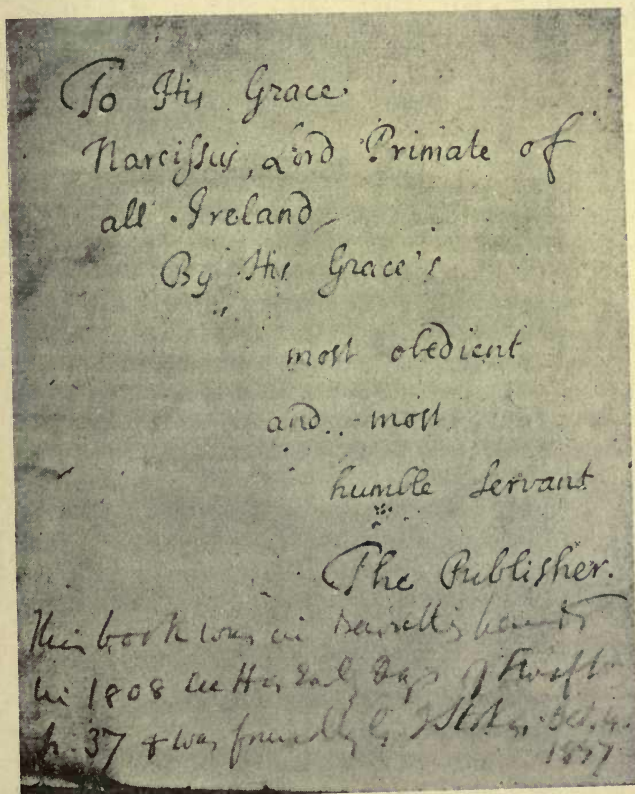 To His Grace
Narcissus, Lord Primate of
all Ireland
By His Grace's
most obedient
and most
humble Servant
The Publisher.
This book was in Barrett's hands
in 1808 Early Days of Swift
p. 37 & was found by J Stokes Oct. 4.
1857